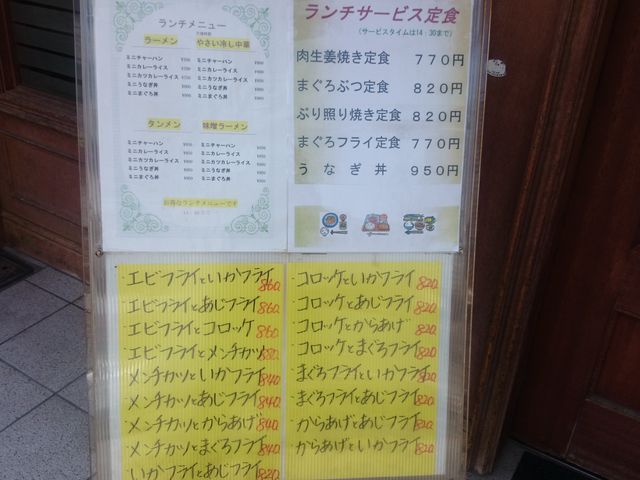 ランチメニュー
ラーメン
やさい冷し中華
ミニチャーハン
ミニカレーライス
ミニカツカレーライス
ミニうなぎ丼
ミニまぐろ丼
ミニチャーハン
ミニカレーライス
ミニカツカレーライス
ミニうなぎ丼
ミニまぐろ丼
タンメン
味噌ラーメン
ミニチャーハン
ミニカレーライス
ミニカツカレーライス
ミニうなぎ丼
ミニまぐろ丼
ミニチャーハン
ミニカレーライス
ミニカツカレーライス
ミニうなぎ丼
ミニまぐろ丼
お得なランチメニューです
ランチサービス定食
(サービスタイムは14:30まで)
肉生姜焼き定食 770円
まぐろぶつ定食 820円
ぶり照り焼き定食 820円
まぐろフライ定食 770円
うなぎ丼 950円
・エビフライといかフライ 860
エビフライとあじフライ 860
・エビフライとコロッケ 860
エビフライとメンチカツ 880
メンチカツといかフライ 840
メンチカツとあじフライ 840
メンチカツとからあげ 840
メンチカツとまぐろフライ 840
いかフライとあじフライ 820
・コロッケといかフライ 820
コロッケとあじフライ 820
・コロッケとからあげ 820
コロッケとまぐろフライ 820
・まぐろフライといかフライ 820
まぐろフライとあじフライ 820
・からあげとあじフライ 820
からあげといかフライ 820